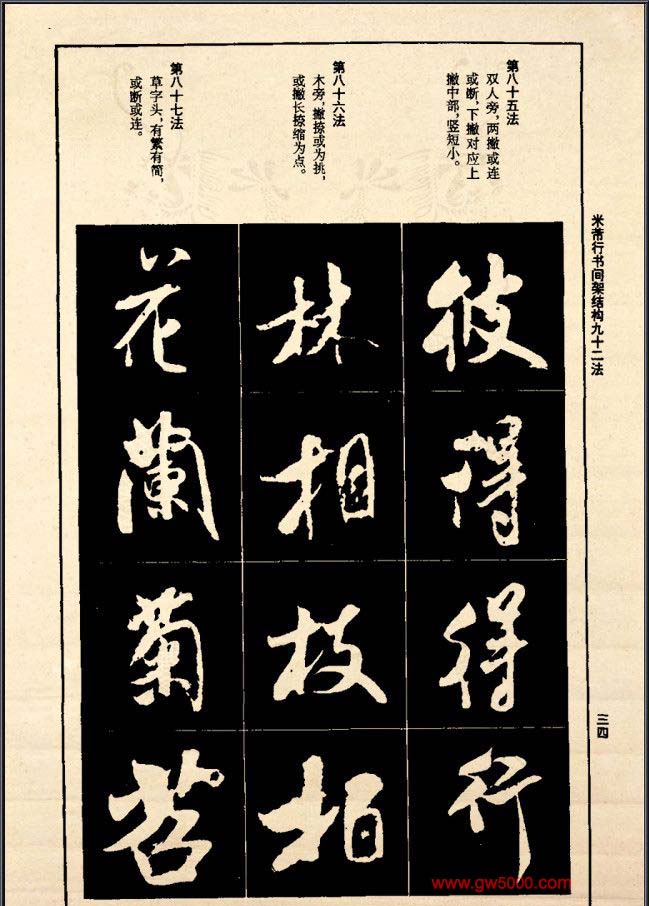 米芾行书间架结构九十二法
三四
第八十五法
双人旁，两撇或连
或断，下撇对应上
撇中部，竖短小。
彼
得
得
行
第八十六法
木旁，撇捺或为挑，
或撇长捺缩为点。
林
相
枝
柏
第八十七法
草字头，有繁有简，
或断或连。
花
兰
菊
苕
www.gw5000.com